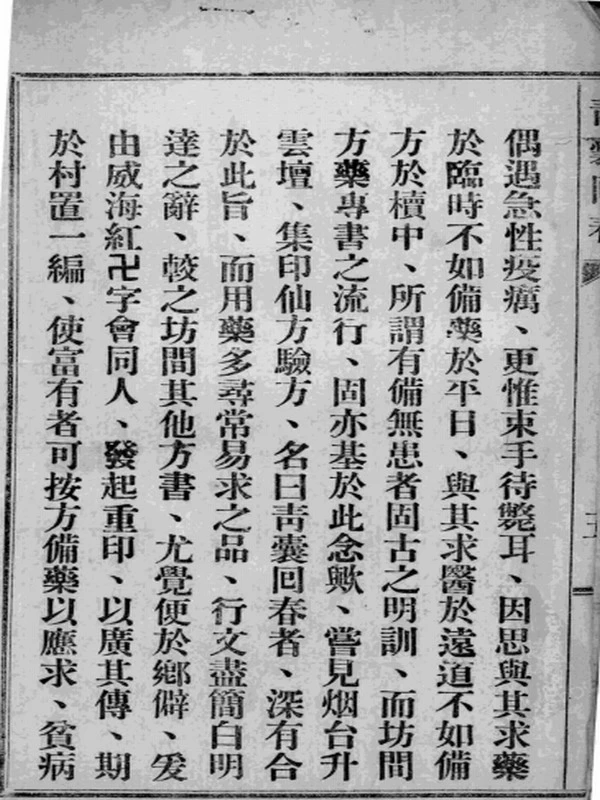 偶遇急性疫癘、更惟束手待斃耳、因思與其求藥
於臨時不如備藥於平日、與其求醫於遠道不如備
方於櫝中、所謂有備無患者固古之明訓、而坊間
方藥專書之流行、固亦基於此念歟、嘗見烟台升
雲壇、集印仙方驗方、名曰青囊回春者、深有合
於此旨、而用藥多尋常易求之品、行文盡簡白明
達之辭、較之坊間其他方書、尤覺便於鄉僻、爰
由威海紅卍字會同人、發起重印、以廣其傳、期
於村置一編、使富有者可按方備藥以應求、貧病